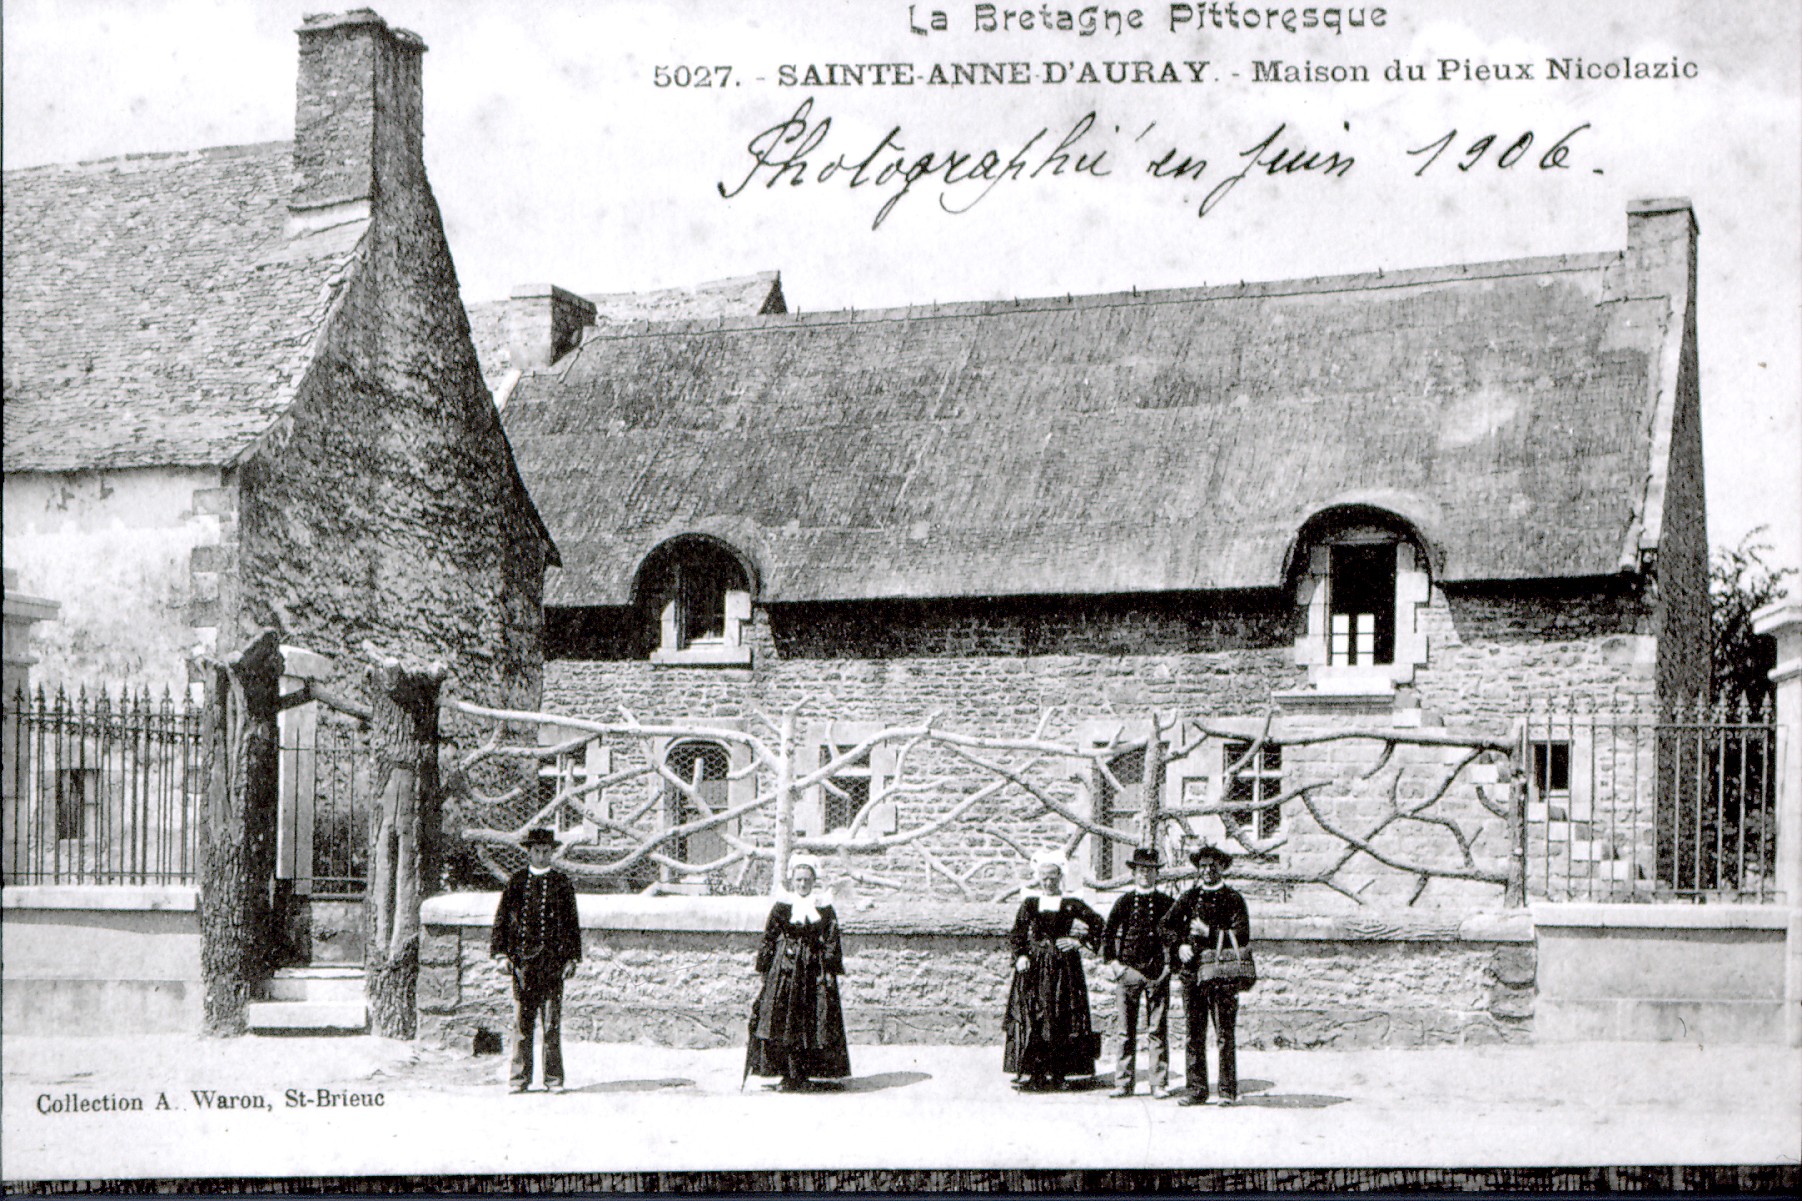 La Bretagne Pittoresque
5027. - SAINTE-ANNE-D'AURAY. - Maison du Pieux Nicolazic
Photographié en Juin 1906.
Collection A. Waron, St-Brieuc